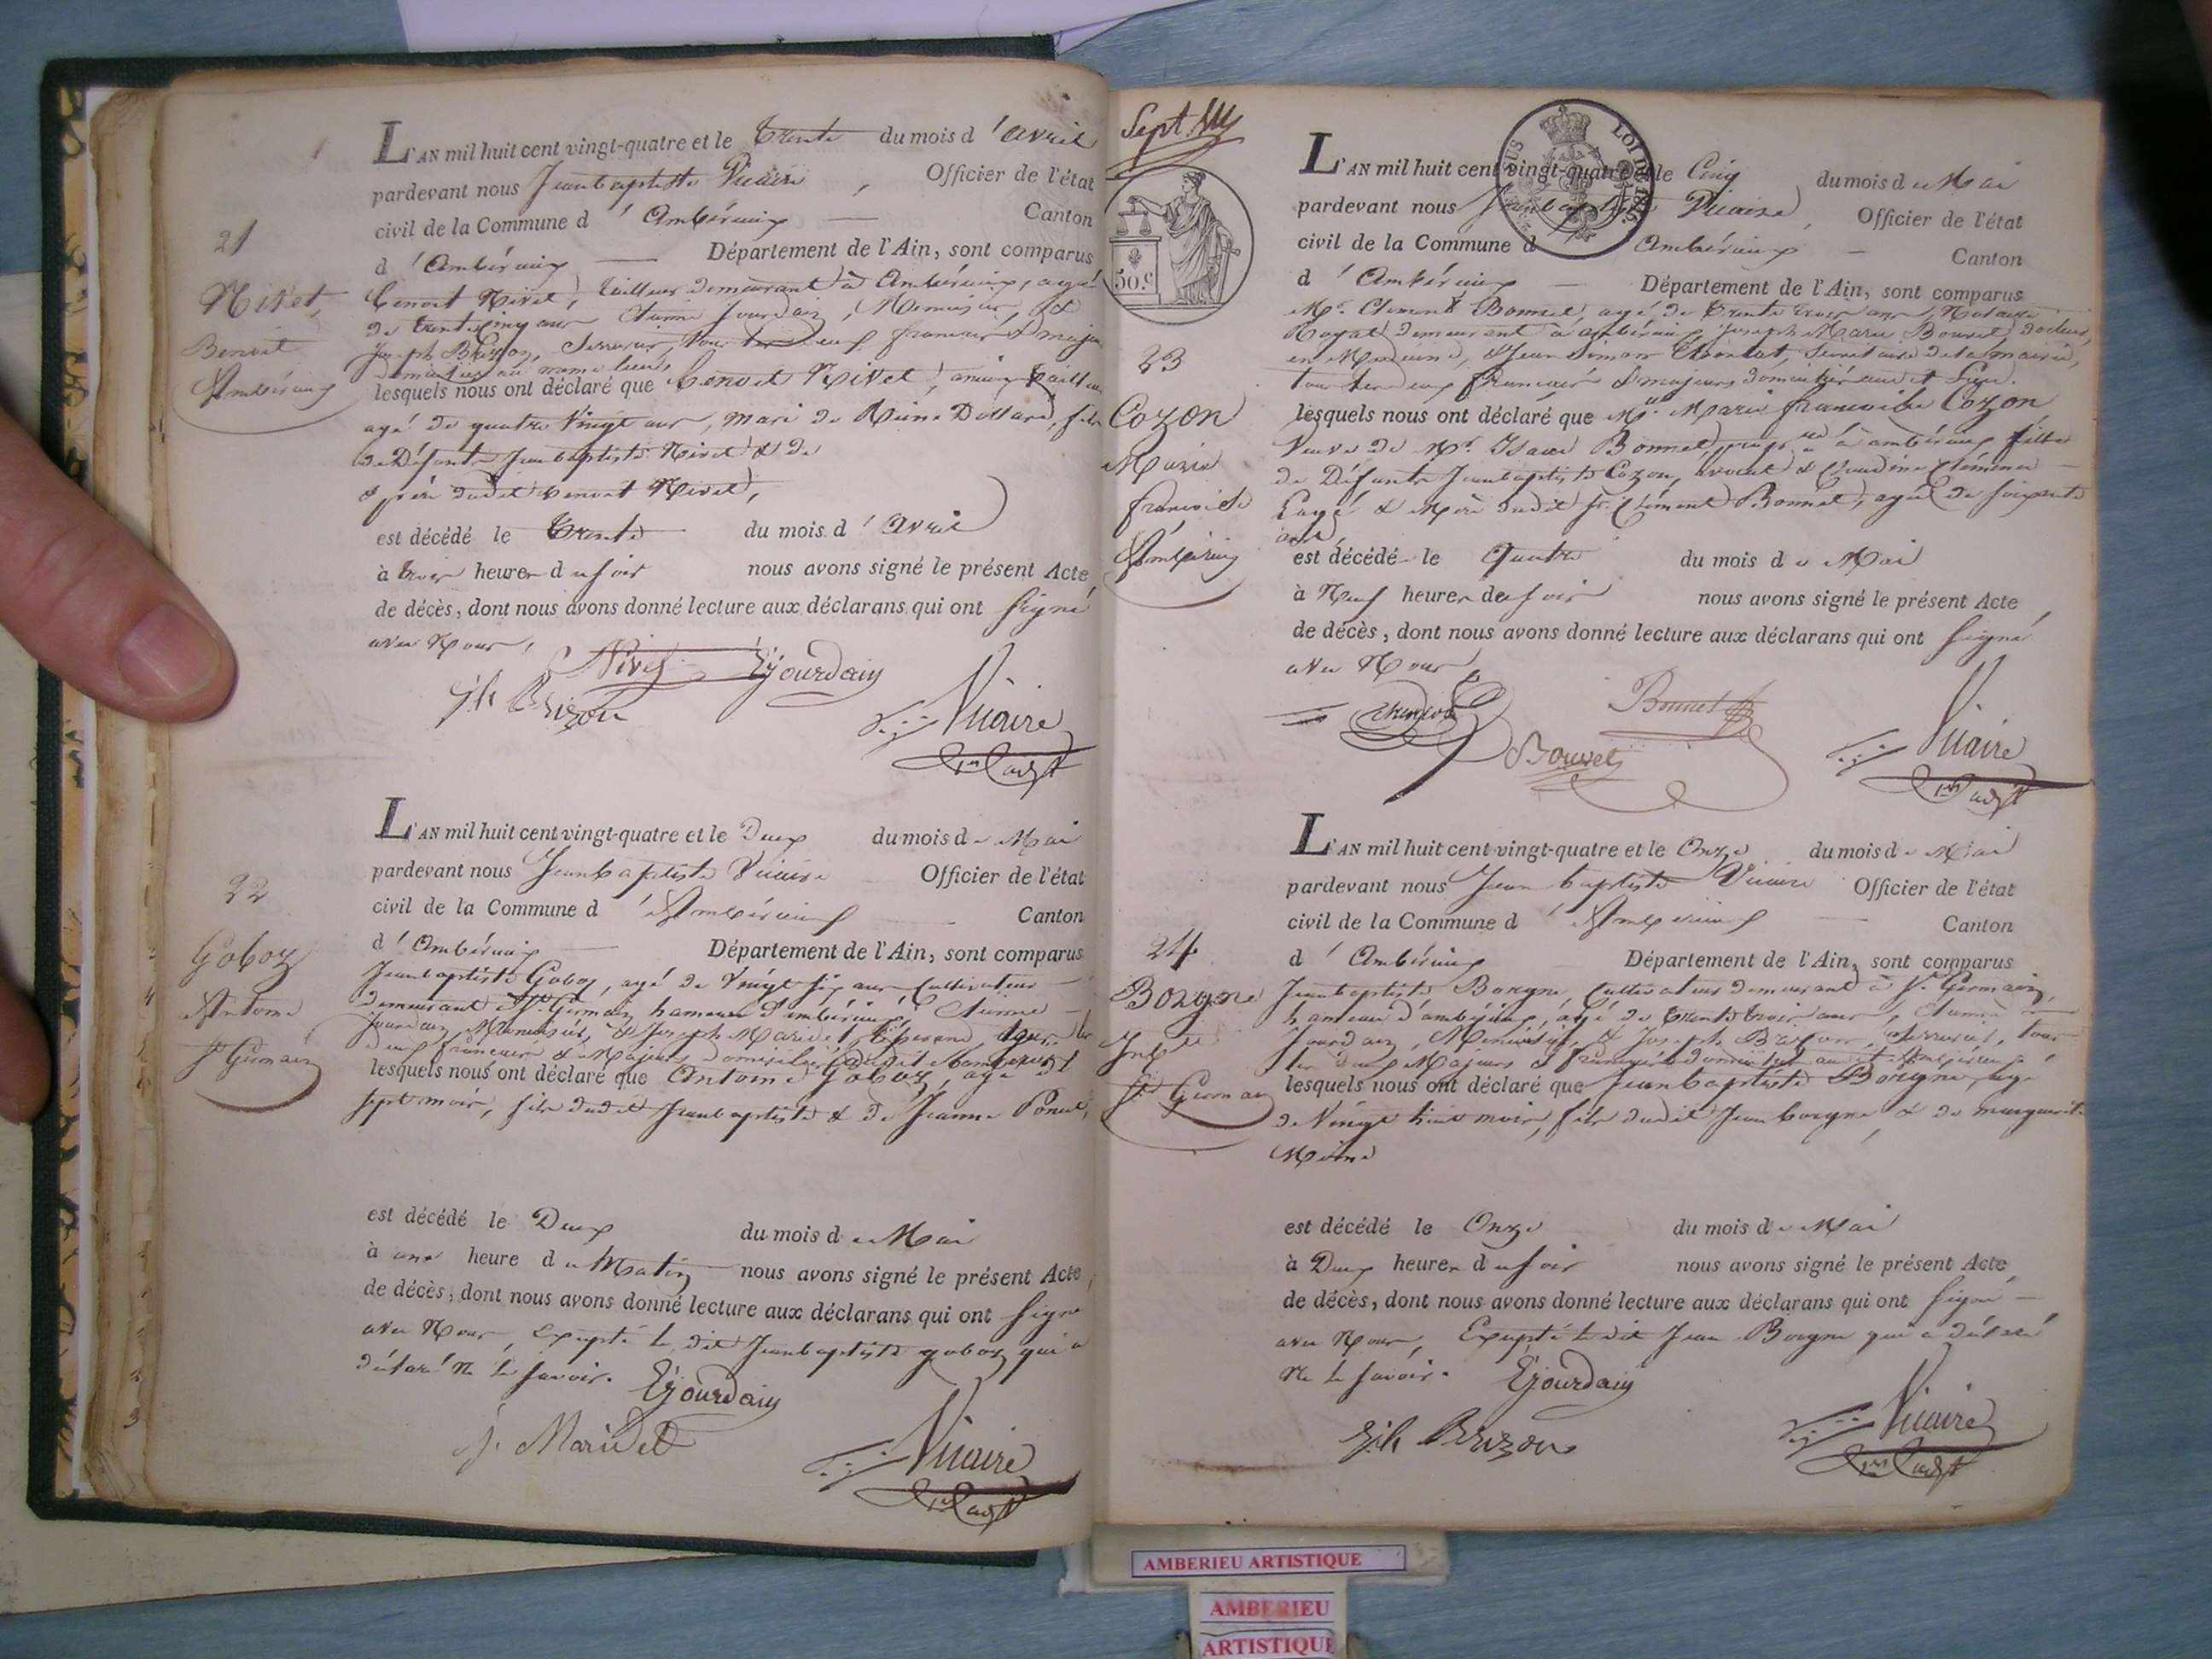 L'AN mil huit cent vingt-quatre et le trente du mois d'avril
pardevant nous Jean baptiste Vicaire, Officier de l'état
civil de la Commune d'Ambérieux Canton
d'Ambérieux Département de l'Ain, sont comparus
Benoit Nivet, tailleur demeurant à Ambérieux, agé
de trente cinq ans Etienne Jourdain, Menuisier, &
Joseph Brizon, Serrurier, tous les deux francais & majeurs
domiciliés au même lieu,
lesquels nous ont déclaré que benoit Nivet, ancien tailleur
agé de quatre vingt ans, mari de Reine Dollard, fils
de Défunts Jean baptiste Nivet & de
& père dudit benoit Nivet,
est décédé le trente du mois d'avril
à trois heures du soir nous avons signé le présent Acte
de décès, dont nous avons donné lecture aux déclarans qui ont signé
avec Nous,
Nivet EJourdain
Jh Brizon
Vicaire
21
Nivet
Benoit
Ambérieux
L'AN mil huit cent vingt-quatre et le Deux du mois de Mai
pardevant nous Jean baptiste Vicaire Officier de l'état
civil de la Commune d'Ambérieux Canton
d'Ambérieux Département de l'Ain, sont comparus
Jean baptiste Goboz, agé de Vingt six ans Cultivateur
demeurant à St. Germain hameau d'ambérieux, Etienne
Jourdain Menuisier, & Joseph Maridet, tous les
deux francais & Majeurs domiciliés
lesquels nous ont déclaré que Antoine Goboz, agé de
sept mois, fils dudit Jean baptiste & de Jeanne Poncet,
est décédé le Deux du mois de Mai
à une heure du Matin nous avons signé le présent Acte
de décès, dont nous avons donné lecture aux déclarans qui ont signé
avec Nous, Excepté le dit Jean baptiste goboz qui a
déclaré Ne le savoir.
EJourdain
J. Maridet
Vicaire
22
Goboz
Antoine
St Germain
Sept.
50 c
LOI DE 1816
L'AN mil huit cent vingt-quatre et le Cinq du mois de Mai
pardevant nous Jean baptiste Vicaire, Officier de l'état
civil de la Commune d'Ambérieux Canton
d'Ambérieux Département de l'Ain, sont comparus
Mr. Clement Bonnet, agé de trente trois ans, Notaire
Royal demeurant à ambérieux, Joseph Marie Bouvet, docteur
en Medecine, & Jean Simon, Secretaire de la mairie,
tous les deux francais & majeurs domiciliés audit Lieu.
lesquels nous ont déclaré que Marie francoise Cozon
Veuve de Mr Isaac Bonnet, à ambérieux fille
de Défunts Jean baptiste Cozon, avocat & Claudine Clémence
& Mère dudit Sr. Clément Bonnet, agée de soixante
ans,
est décédé le Quatre du mois de Mai
à Neuf heures du soir nous avons signé le présent Acte
de décès, dont nous avons donné lecture aux déclarans qui ont signé
avec Nous
Bonnet
Bouvet
Vicaire
23
Cozon
Marie
francoise
Ambérieux
L'AN mil huit cent vingt-quatre et le Onze du mois de Mai
pardevant nous Jean baptiste Vicaire Officier de l'état
civil de la Commune d'Ambérieux Canton
d'Ambérieux Département de l'Ain, sont comparus
Jean baptiste Borgne, Cultivateur demeurant à St. Germain,
hameau d'ambérieux, agé de trente trois ans, Etienne
Jourdain, Menuisier, & Joseph Brizon, Serrurier, tous
les deux Majeurs & francais domiciliés audit Ambérieux,
lesquels nous ont déclaré que Jean baptiste Borgne, agé
de Vingt huit mois, fils dudit Jean borgne & de marguerite
est décédé le Onze du mois de Mai
à Deux heures du soir nous avons signé le présent Acte
de décès, dont nous avons donné lecture aux déclarans qui ont signé
avec Nous, Excepté le dit Jean Borgne qui a déclaré
Ne le savoir.
EJourdain
Jh Brizon
Vicaire
24
Borgne
Jn Bte
St Germain
AMBERIEU ARTISTIQUE
AMBERIEU
ARTISTIQUE